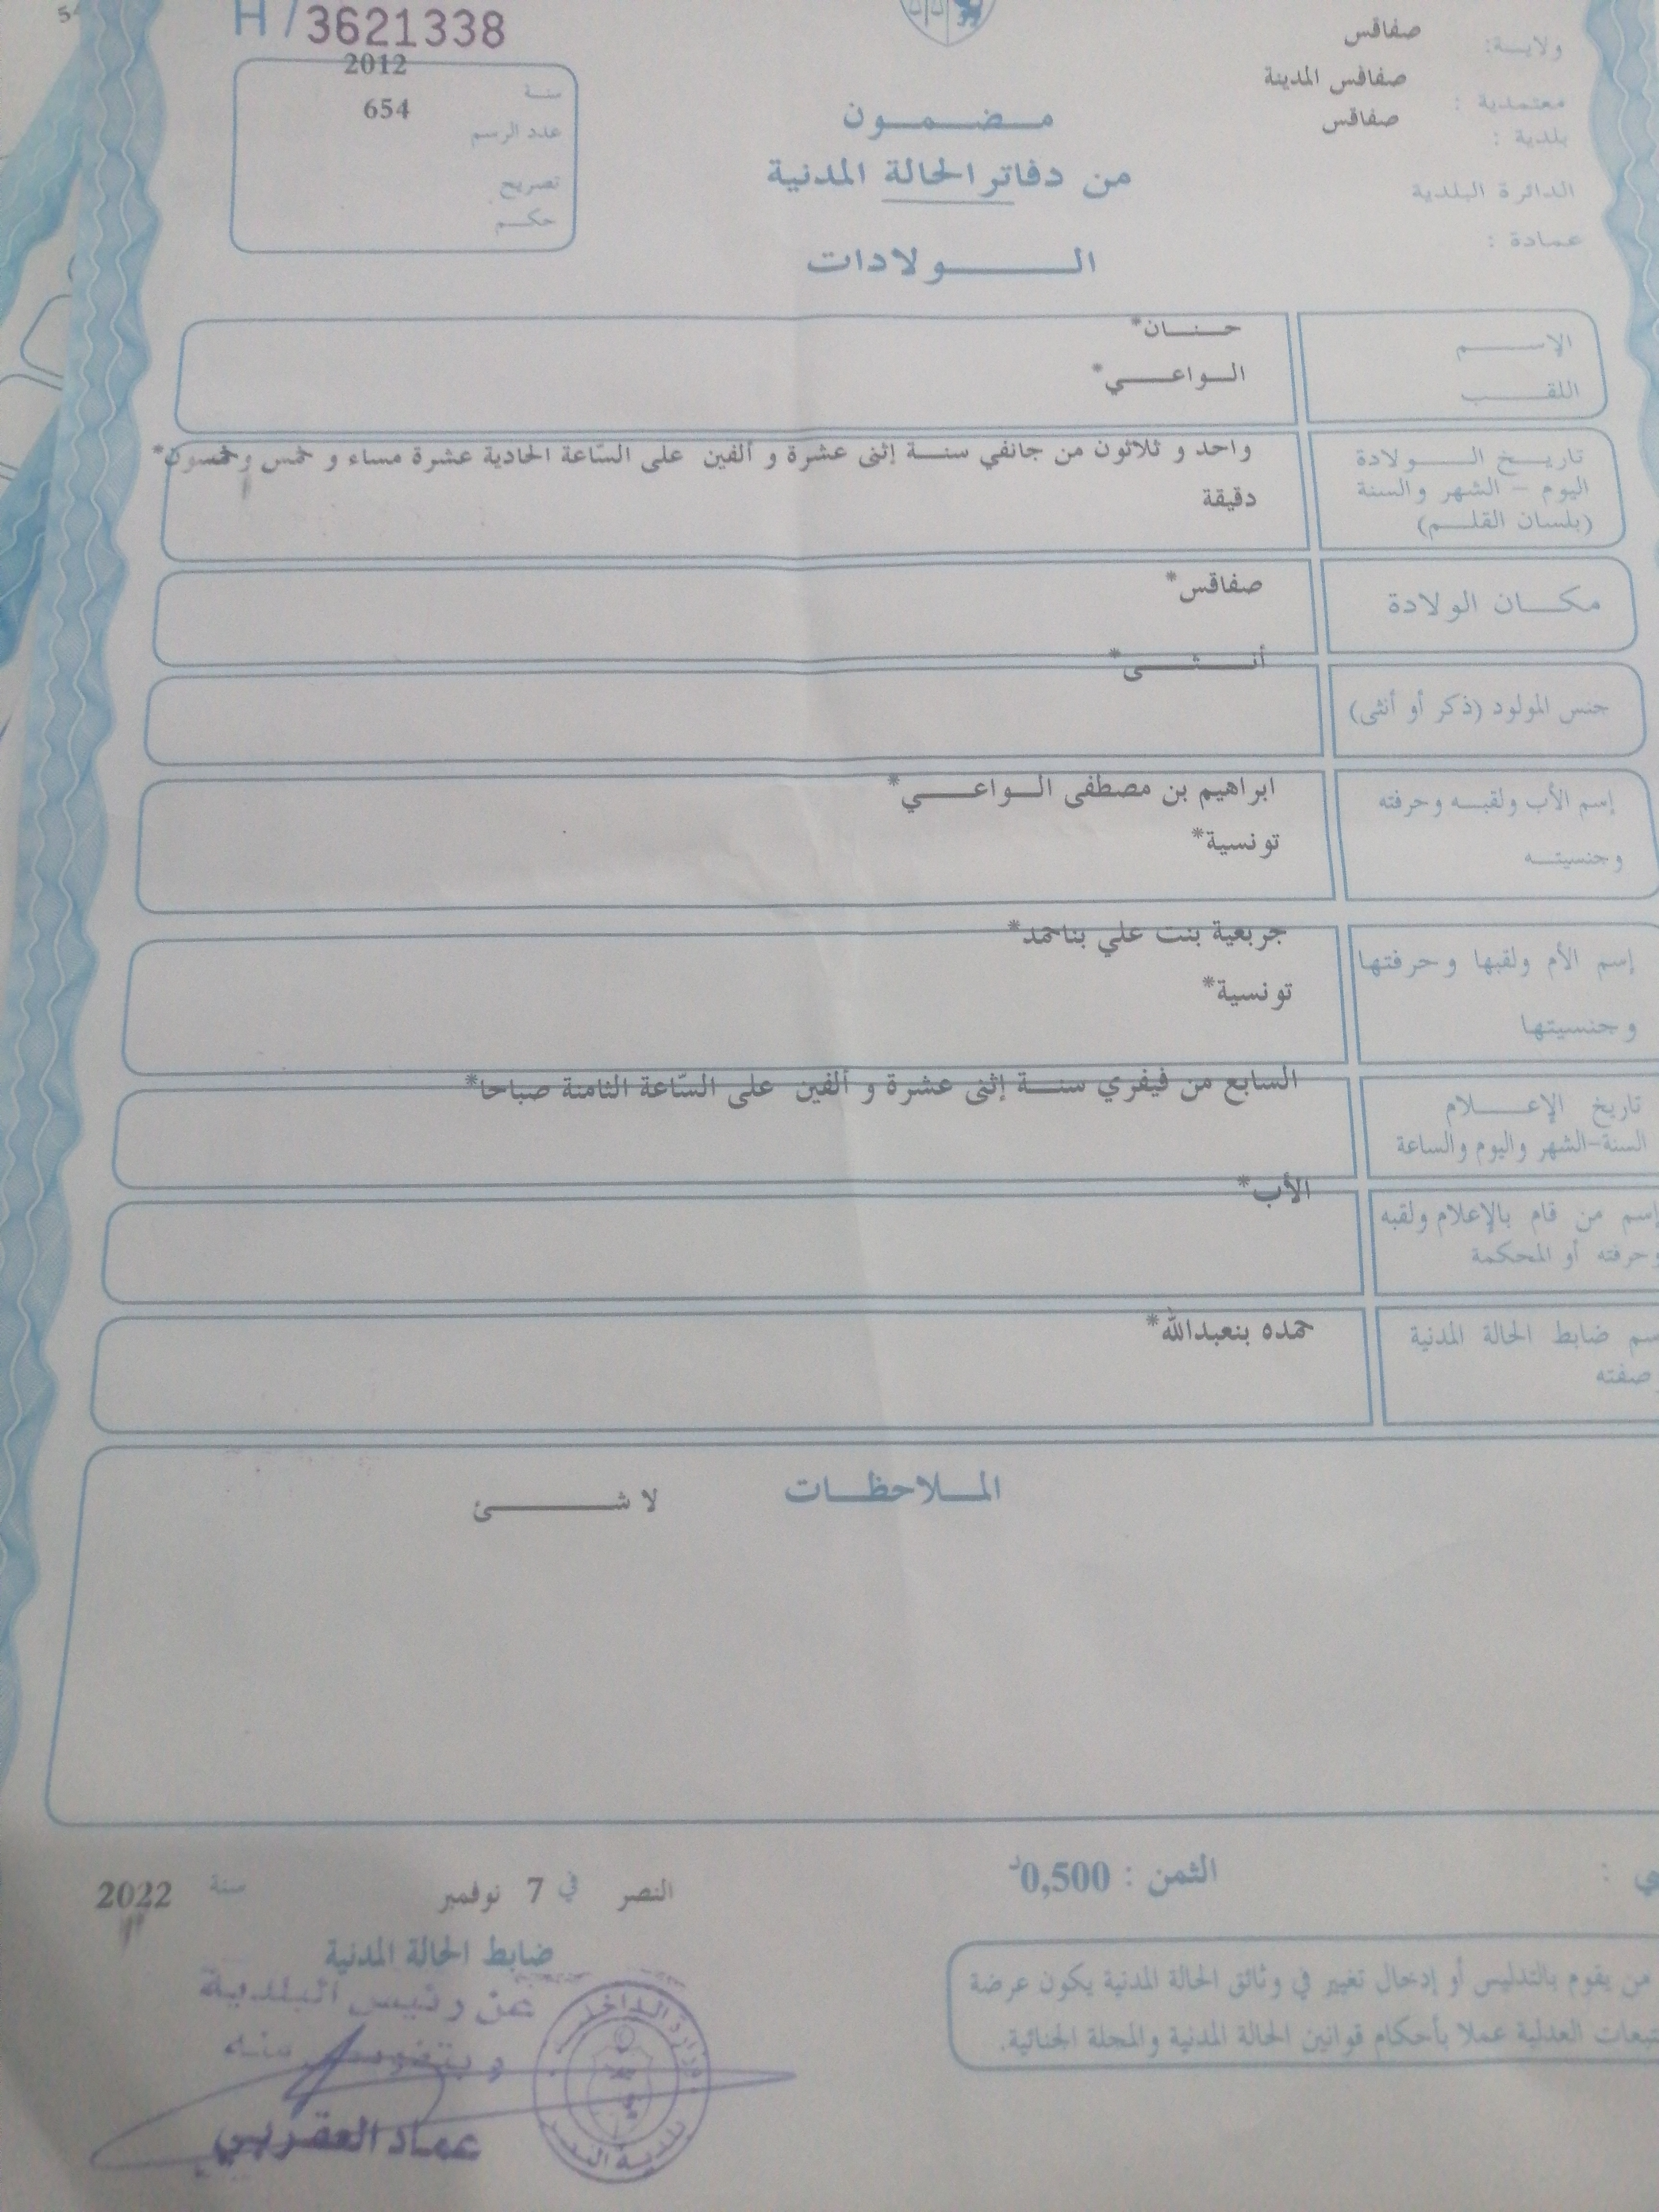 H / 3621338
ولايـــة: صفاقس
معتمدية : صفاقس المدينة
بلدية : صفاقس
الدائرة البلدية
عمادة :
سنـة 2012
عدد الرسم 654
تصريح
حكـم
مـضـمـون
من دفاتر الحالة المدنية
الـــولادات
الإســـم حـنــان*
اللقــب الـواعــي*
تاريـخ الـــولادة واحد و ثلاثون من جانفي سنــة إثنى عشرة و ألفين على السّاعة الحادية عشرة مساء و خمس وخمسون*
اليوم – الشهر والسنة دقيقة
(بلسان القلـــم)
مكــان الولادة صفاقس*
جنس المولود (ذكر أو أنثى) أنــثــى*
إسم الأب ولقبـه وحرفته ابراهيم بن مصطفى الـواعــي*
وجنسيتــه تونسية*
إسم الأم ولقبها وحرفتها جربعية بنت علي بناحمد*
وجنسيتها تونسية*
تاريخ الإعــــلام السابع من فيفري سنــة إثنى عشرة و ألفين على السّاعة الثامنة صباحا*
السنة-الشهر واليوم والساعة
إسم من قام بالإعلام ولقبه الأب*
وحرفته أو المحكمة
سم ضابط الحالة المدنية حمده بنعبدالله*
صفته
المــلاحظــات
لا شــــئ
ي :
الثمن : 0,500د
النصر في 7 نوفمبر سنة 2022
ضابط الحالة المدنية
عن رئيس البلدية
وبتفويض منه
عماد العقربي
من يقوم بالتدليس أو إدخال تغيير في وثائق الحالة المدنية يكون عرضة
تبعات العدلية عملا بأحكام قوانين الحالة المدنية والمجلة الجنائية.